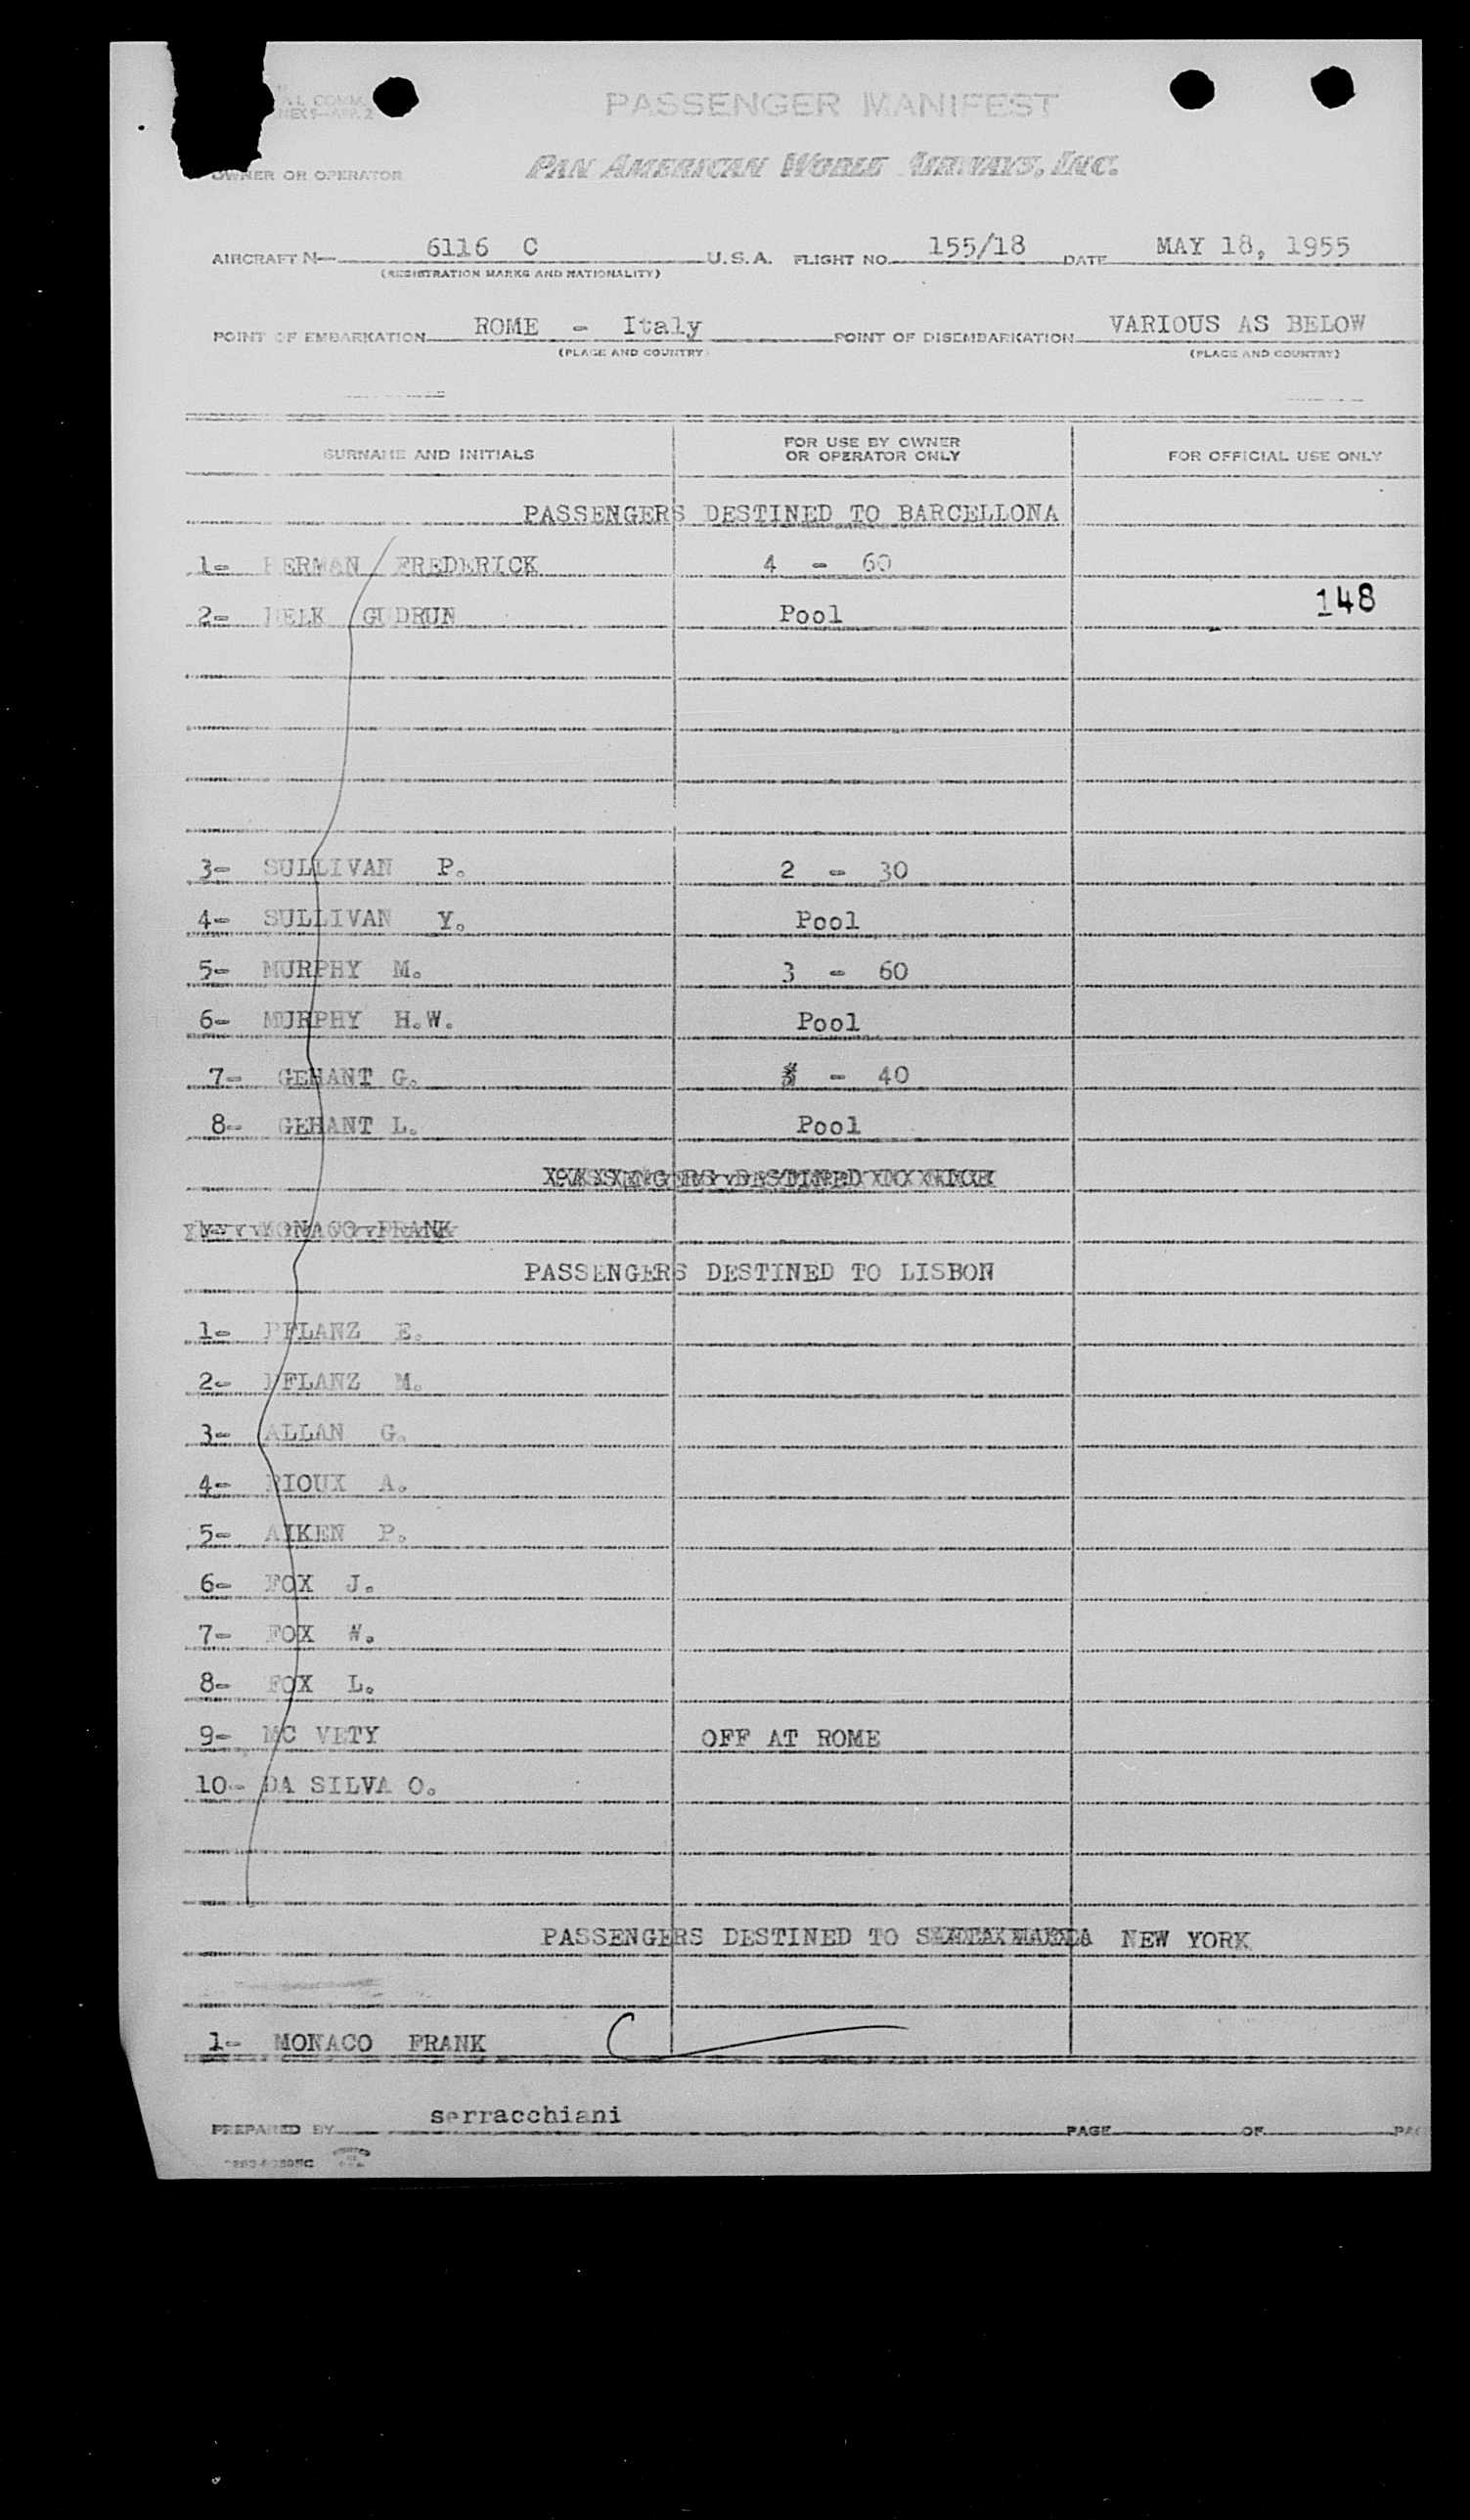 PASSENGER MANIFEST
OWNER OR OPERATOR
PAN AMERICAN WORLD AIRWAYS, INC.
AIRCRAFT N— 6116 C U.S.A. FLIGHT NO. 155/18 DATE MAY 18, 1955
(REGISTRATION MARKS AND NATIONALITY)
POINT OF EMBARKATION ROME - Italy POINT OF DISEMBARKATION VARIOUS AS BELOW
(PLACE AND COUNTRY) (PLACE AND COUNTRY)
SURNAME AND INITIALS FOR USE BY OWNER OR OPERATOR ONLY FOR OFFICIAL USE ONLY
PASSENGERS DESTINED TO BARCELLONA
1- BERMAN FREDERICK 4 - 60
2- GUDRUN Pool 148
3- SULLIVAN P. 2 - 30
4- SULLIVAN Y. Pool
5- MURPHY M. 3 - 60
6- MURPHY H.W. Pool
7- GEHANT G. - 40
8- GEHANT L. Pool
MONACO FRANK
PASSENGERS DESTINED TO LISBON
1- PFLANZ E.
2- PFLANZ M.
3- ALLAN G.
4- RIOUX A.
5- AIKEN P.
6- FOX J.
7- FOX W.
8- FOX L.
9- MC VETY OFF AT ROME
10- DA SILVA O.
PASSENGERS DESTINED TO NEW YORK
1- MONACO FRANK
PREPARED BY serracchiani PAGE OF